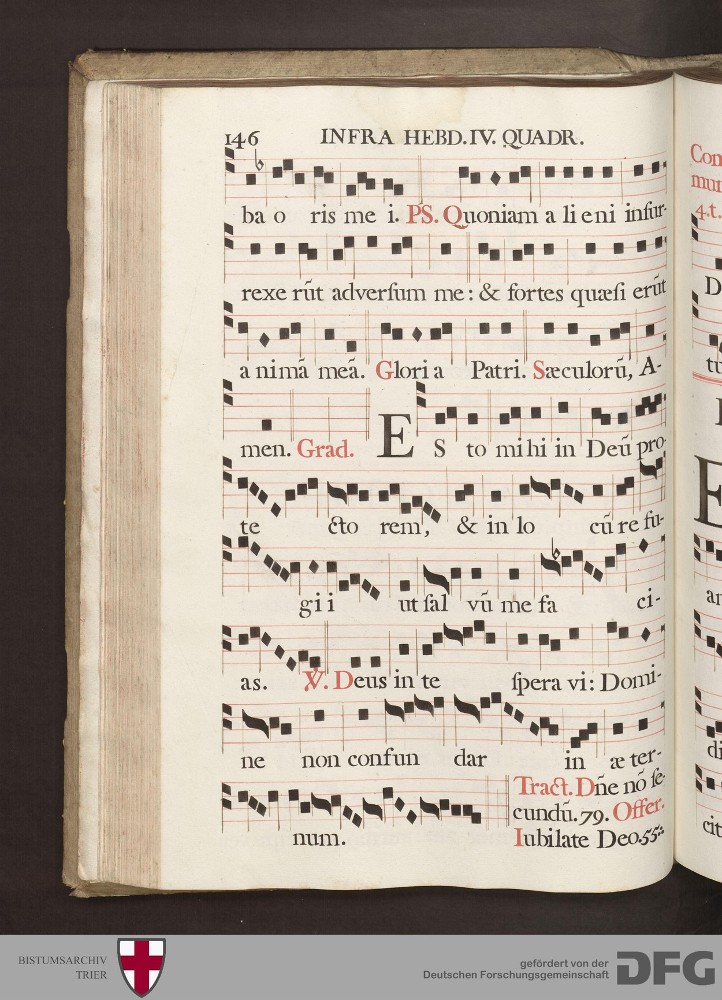 146 INFRA HEBD. IV. QUADR.
ba o ris me i. PS. Quoniam a li eni insur-
rexe rūt adversum me: & fortes quæsi erūt
a nimā meā. Glori a Patri. Sæculorū, A-
men. Grad. E S to mi hi in Deū pro-
te cto rem, & in lo cū re fu-
gi i ut sal vū me fa ci-
as. ℣. Deus in te spera vi: Domi-
ne non confun dar in æ ter-
num.
Tract. Dñe nō se-
cundū. 79. Offer.
Iubilate Deo. 55.
Com
mun
4. t.
D
tu
E
an
di
cit
BISTUMSARCHIV
TRIER
gefördert von der
Deutschen Forschungsgemeinschaft
DFG